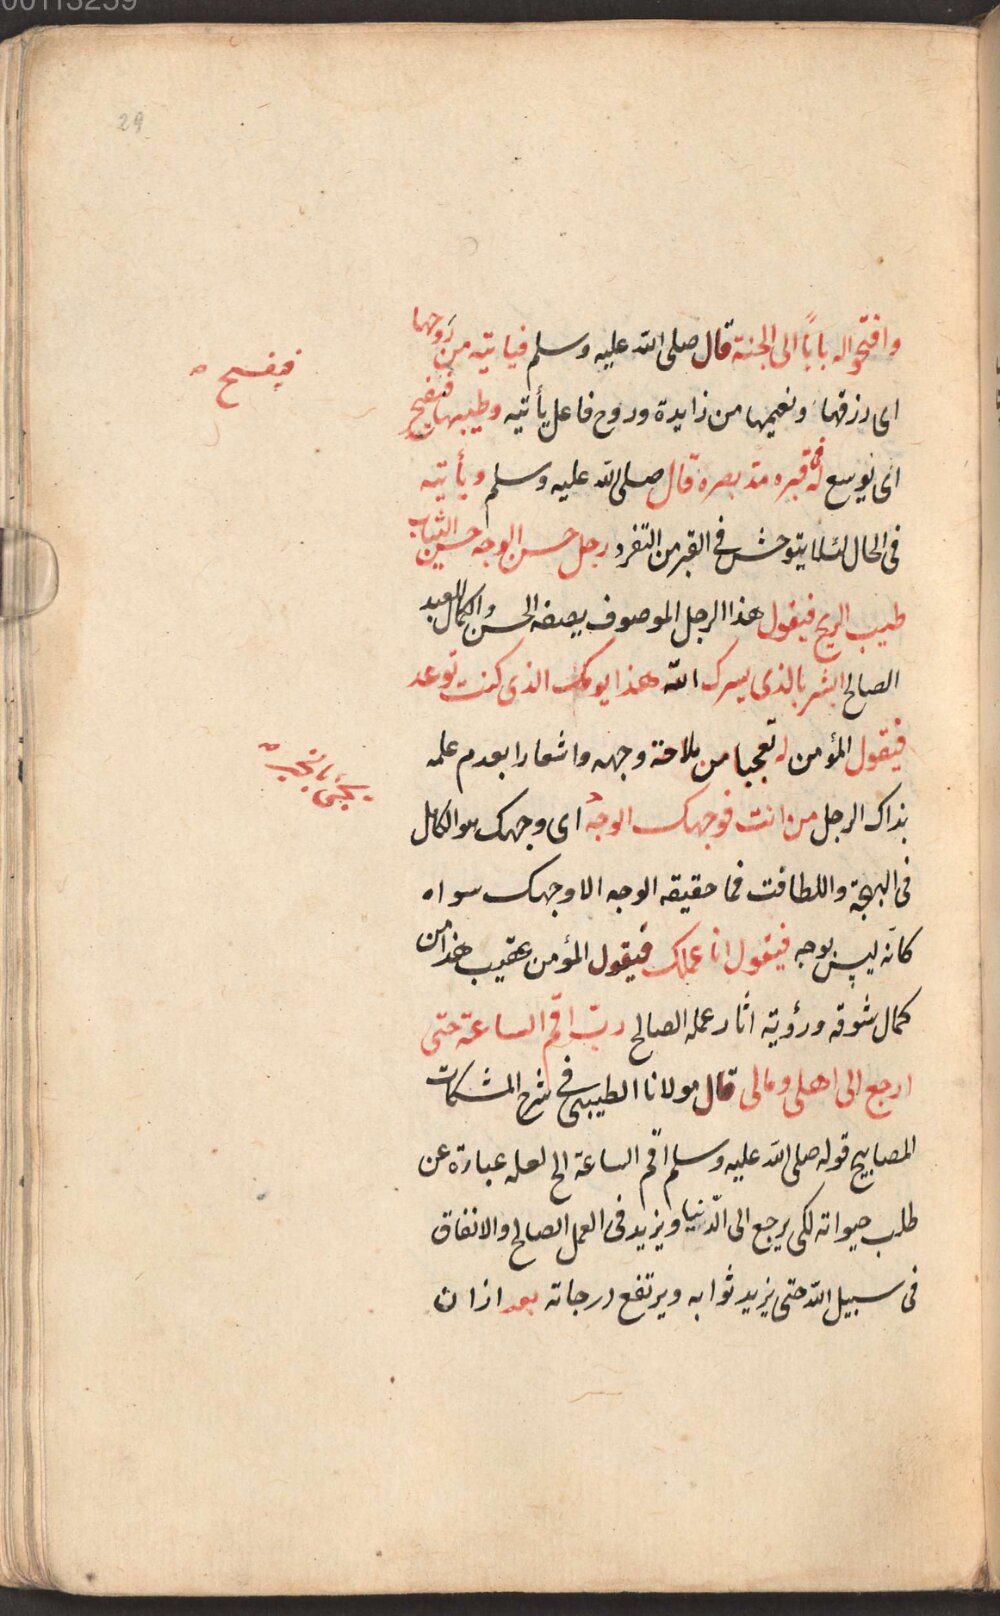 29
وافتحوا له باباً الى الجنة قال صلى الله عليه وسلم فياتيه من رَوحها
اى رزقها ونعيمها من زايدة وروح فاعل يأتيه وطيبها فيفسح
فيفسح
اى يوسع له فى قبره مدّ بصره قال صلى الله عليه وسلم ويأتيه
فى الحال لئلا يتوحش فى القبر من التفرد رجل حسن الوجه حسن الثياب
طيب الريح فيقول هذا الرجل الموصوف بصفه الحسن والكمال للعبد
الصالح ابشر بالذى يسرك الله هذا يومك الذى كنت توعد
فيقول المؤمن له تعجبا من ملاحة وجهه واشعارا بعدم علمه
يجئ بالخير
بذاك الرجل من انت فوجهك الوجه اى وجهك هو الكامل
فى البهجة واللطافت فما حقيقه الوجه الا وجهك سواه
كانّه ليس بوجه فيقول انا عملك فيقول المؤمن عقيب هذا من
كمال شوقه ورؤية اثار عمله الصالح ربّ اقم الساعة حتى
ارجع الى اهلى ومالى قال مولانا الطيبى فى شرح المشكات
المصابيح قوله صلى الله عليه وسلم اقم الساعة الخ لعله عبارة عن
طلب حيواته لكى يرجع الى الدّنيا ويزيد فى العمل الصالح والانفاق
فى سبيل الله حتى يزيد ثوابه ويرتفع درجاته بعد ازان